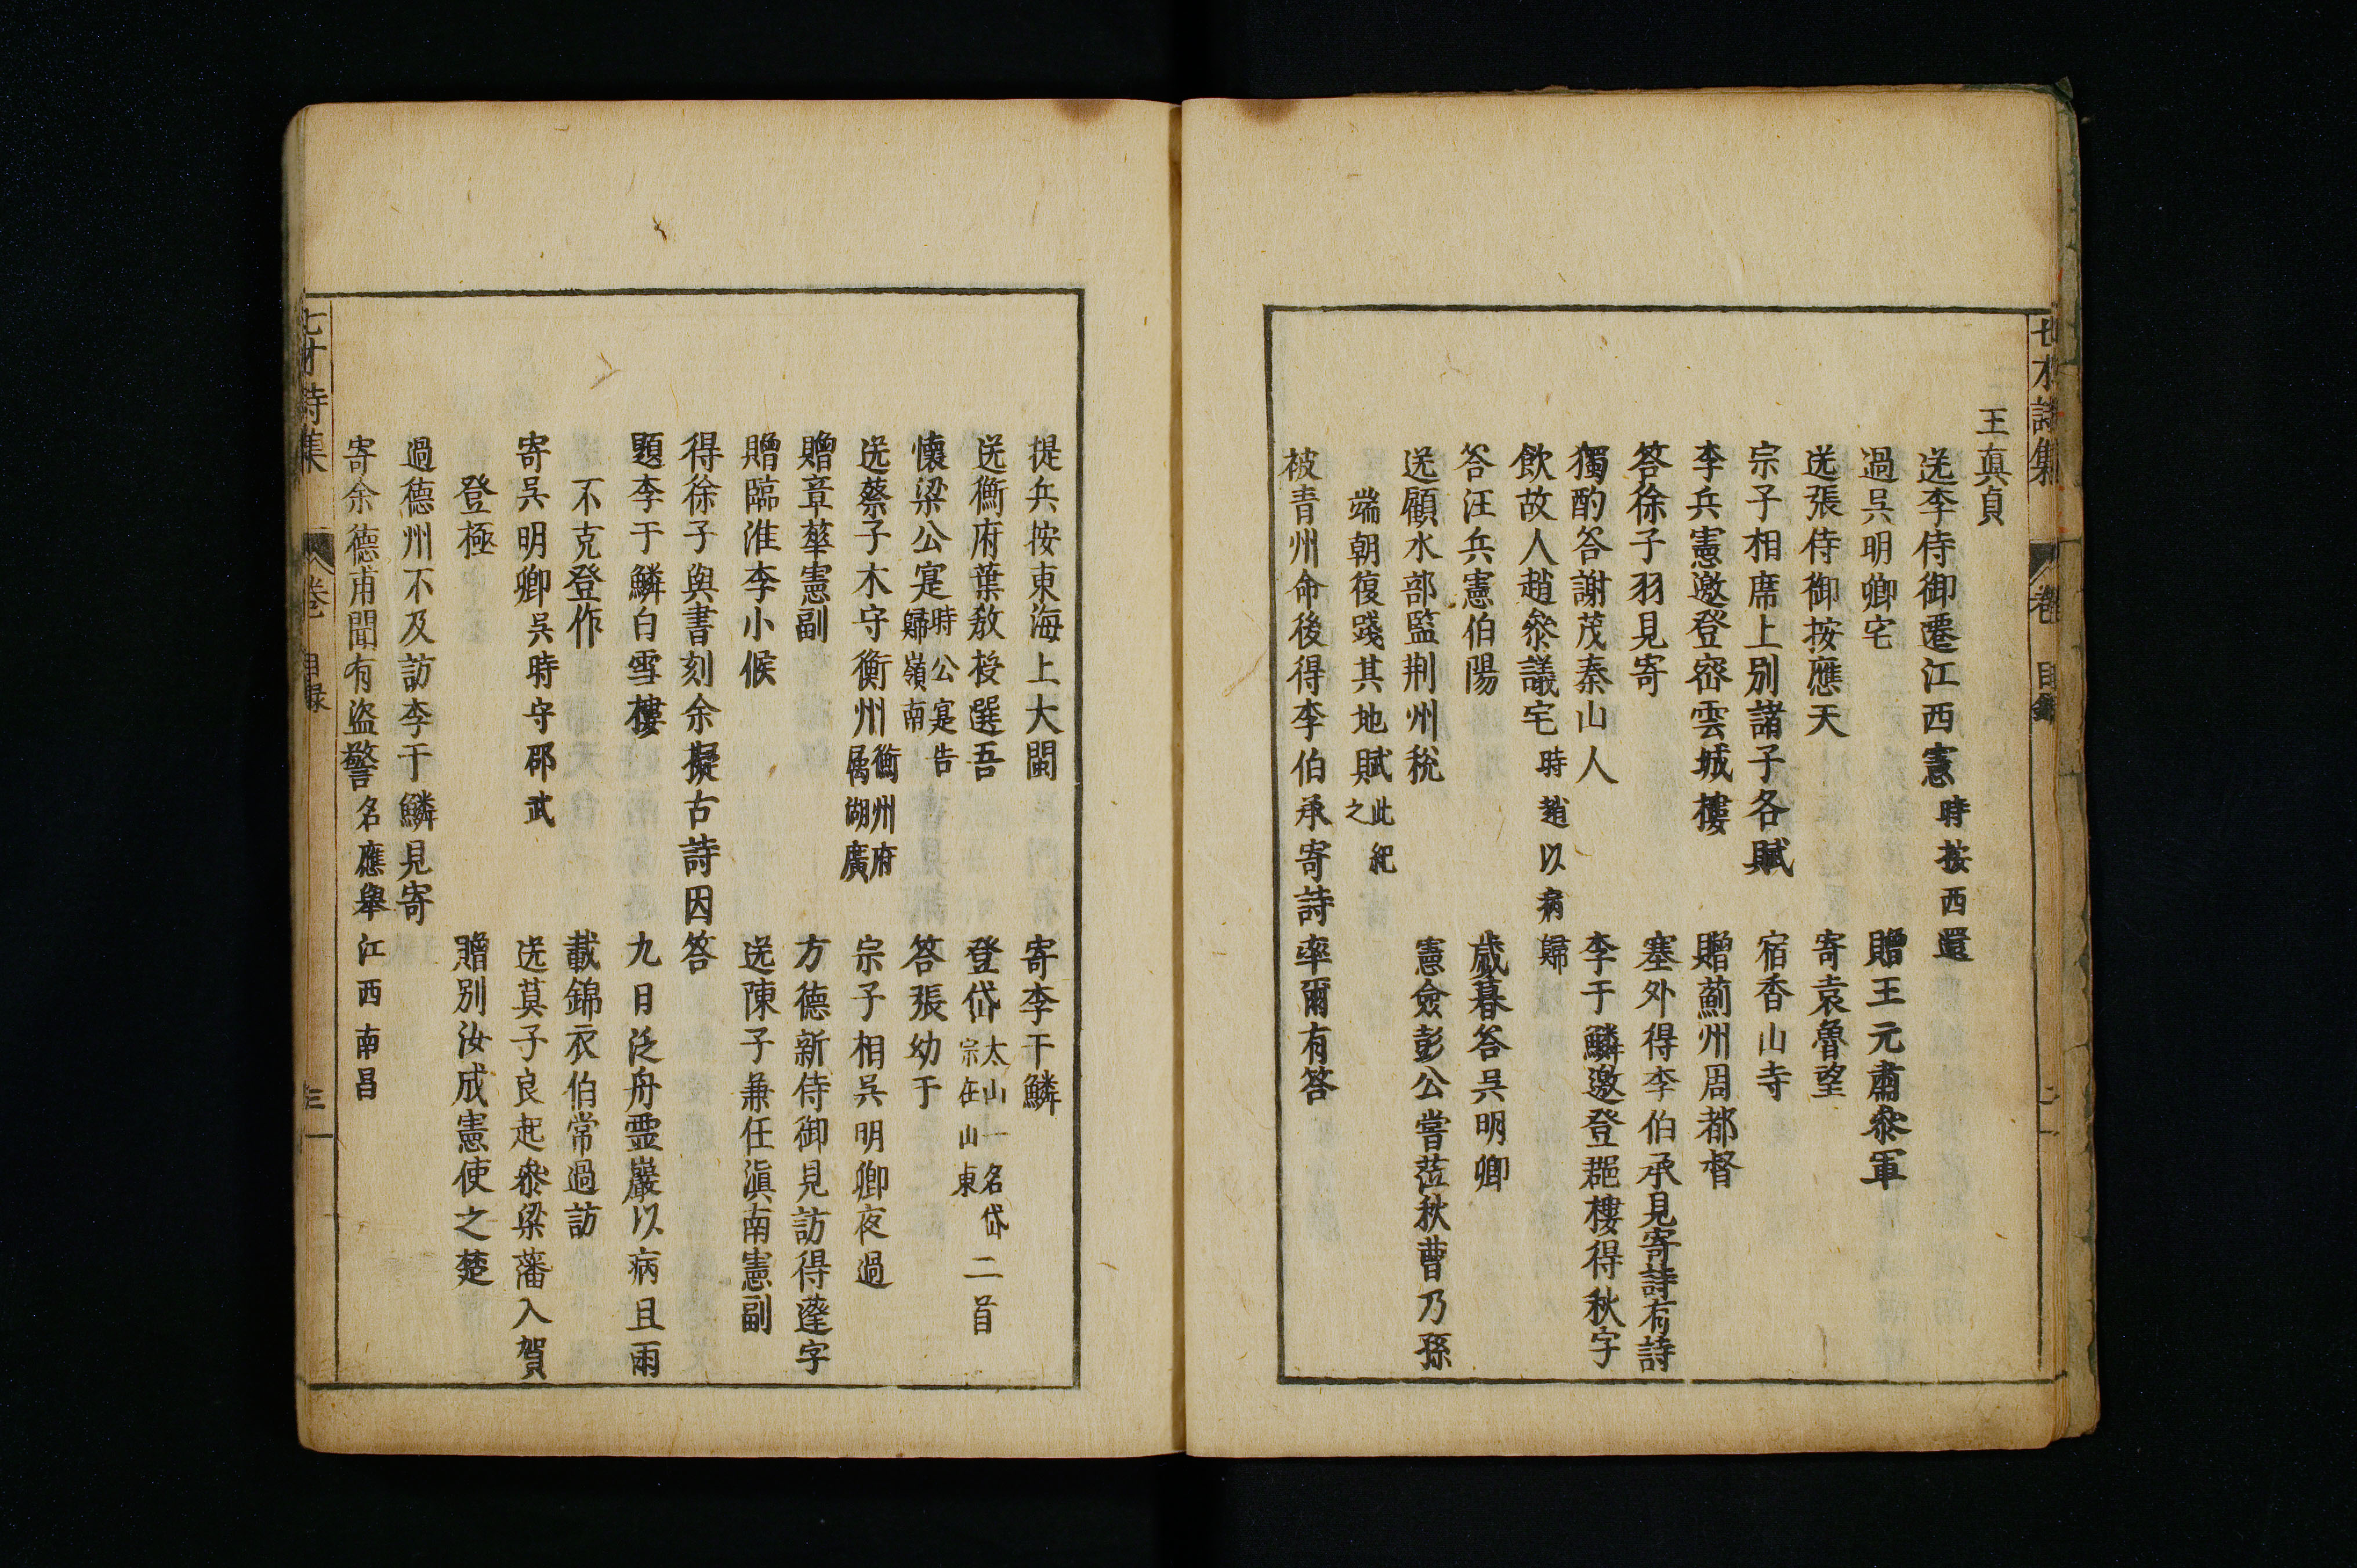 七才詩集 卷一 目錄 二
王真貞
送李侍御遷江西憲 時按西還
過吳明卿宅 贈王元肅參軍
送張侍御按應天 寄袁魯望
宗子相席上別諸子各賦 宿香山寺
李兵憲邀登密雲城樓 贈薊州周都督
答徐子羽見寄 塞外得李伯承見寄詩有詩
獨酌答謝茂秦山人 李于鱗邀登郡樓得秋字
飲故人趙參議宅 時趙以病歸
答汪兵憲伯陽 歲暮答吳明卿
送顧水部監荆州稅 憲僉彭公嘗蒞秋曹乃孫
端朝復踐其地賦 此紀之
被青州命後得李伯承寄詩率爾有答
提兵按東海上大閱 寄李于鱗
送衡府葉教授選吾 登岱 太山一名岱宗在山東 二首
懷梁公寔 時公寔告歸嶺南 答張幼于
送蔡子木守衡州 衡州府属湖廣 宗子相吳明卿夜過
贈章華憲副 方德新侍御見訪得蓬字
贈臨淮李小候 送陳子兼任滇南憲副
得徐子與書刻余擬古詩因答
題李于鱗白雪樓 九日泛舟靈巖以病且雨
不克登作 載錦衣伯常過訪
寄吳明卿 吳時守邵武 送莫子良起參梁藩入賀
登極 贈別汝成憲使之楚
過德州不及訪李于鱗見寄
寄余德甫聞有盜警 名應舉江西南昌
七才詩集 卷一 目録 三